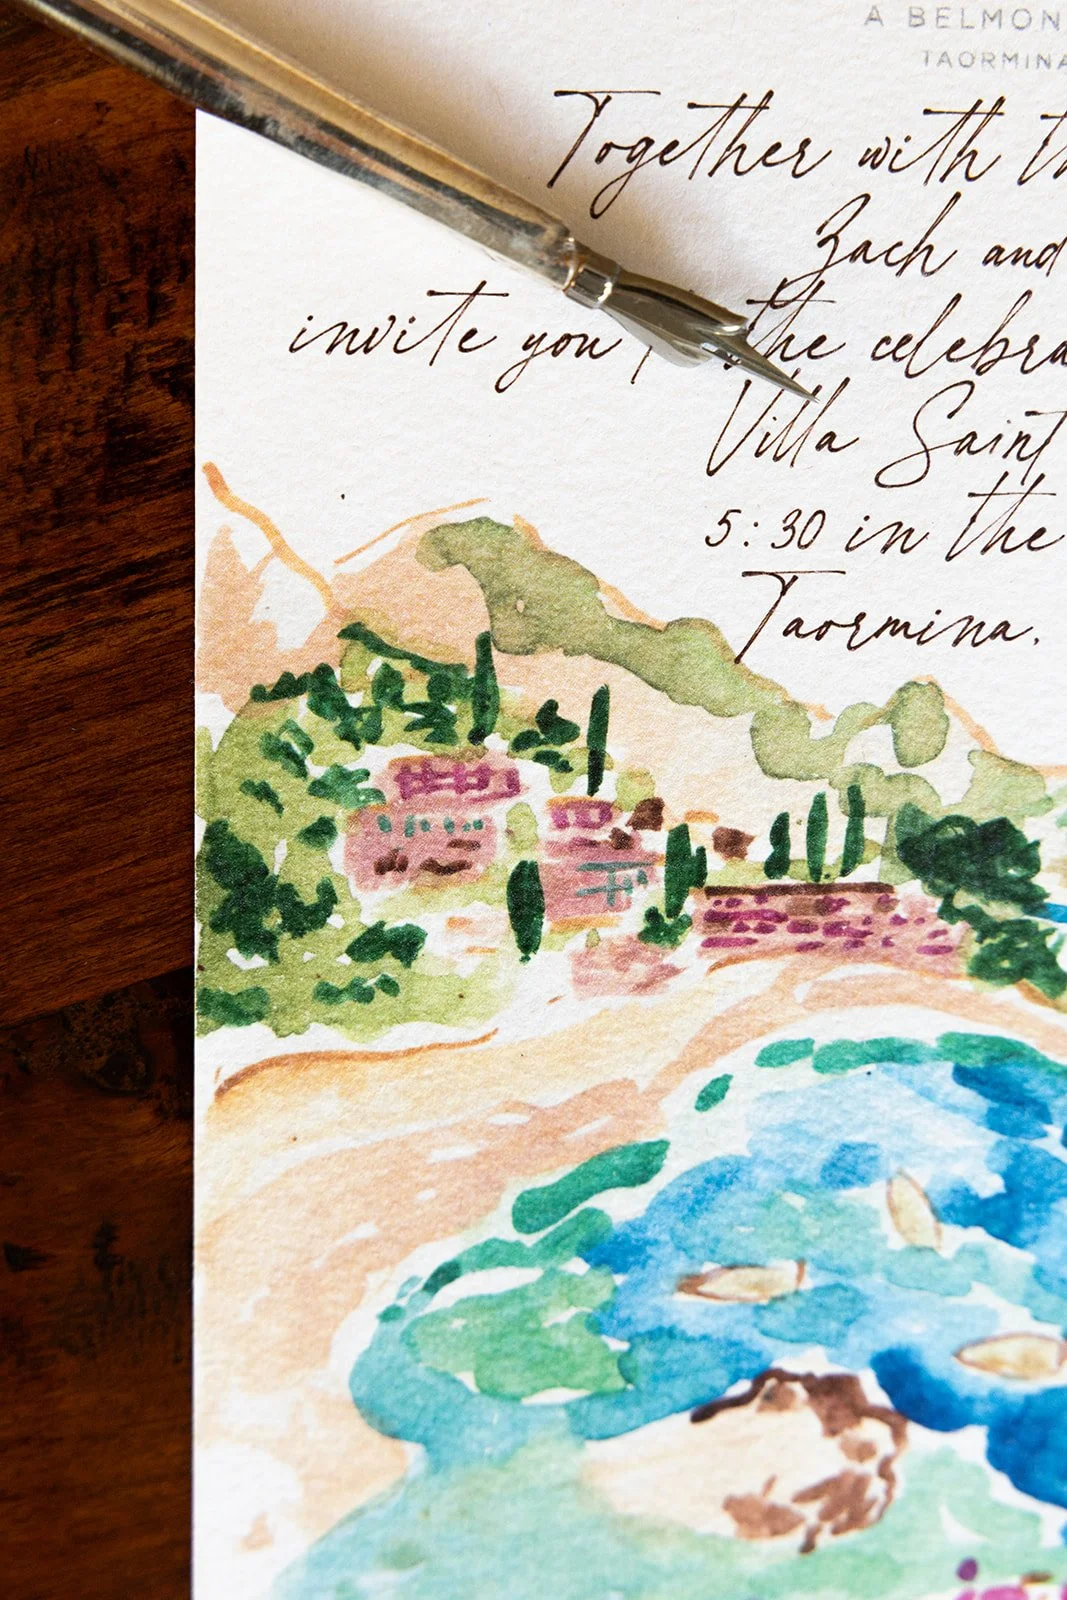 A BELMON
TAORMINA
Together with th
Zach and
invite you t the celebra
Villa Saint
5:30 in the
Taormina.